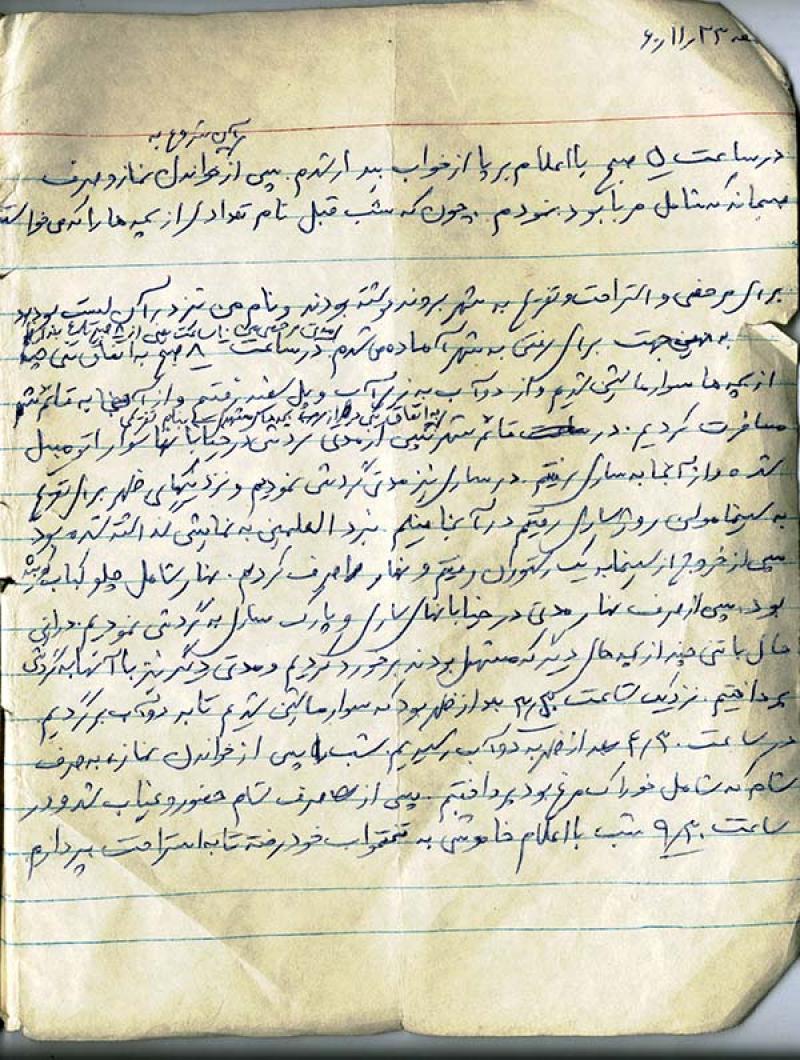 ۶۰٫۱۱٫۲۳
در ساعت ۵ صبح با اعلام برپا از خواب بیدار شدم. پس از خواندن نماز و صرف
صبحانه که شامل مربا بود نمودم. چون که شب قبل نام تعدادی از بچه ها را که می
برای مرخصی و استراحت و تفریح به شهر بروند نوشته بودند و نام من نیز در آن لیست بود
به همین جهت برای رفتن به شهر آماده می شدم در ساعت ۸ صبح به اتفاق تنی چند
از بچه ها سوار ماشین شدیم و از دوآب به زیرآب و پل سفید رفتیم و از آنجا به قائم شهر
مسافرت کردیم. در قائم شهر پس از مدتی گردش در خیابانها سوار اتومبیل
شده و از آنجا به ساری رفتیم. در ساری نیز مدتی گردش نمودیم و نزدیکهای ظهر برای تفریح
به سینما مولن روژ ساری رفتیم در آنجا فیلم نبرد به نمایش گذاشته شده بود
پس از خروج از سینما به یک رستوران رفتیم و نهار صرف کردیم. نهار شامل چلو کباب
بود. پس از صرف نهار مدتی در خیابانهای ساری و پارک ساری به گردش نمودیم. در این
حال با تنی چند از بچه های دیگر که بودند برخورد کردیم و مدتی دیگر نیز با آنها به گردش
پرداختیم. نزدیک ساعت بعد از ظهر بود که سوار ماشین شدیم تا به دوآب برگردیم
در ساعت ۴٫۳۰ بعد از ظهر به دوآب رسیدیم. شب پس از خواندن نماز، به صرف
شام که شامل خوراک مرغ بود پرداختیم. پس از صرف شام حضور و غیاب شد و در
ساعت ۹٫۳۰ شب با اعلام خاموشی به تختخواب خود رفته تا به استراحت بپردازم